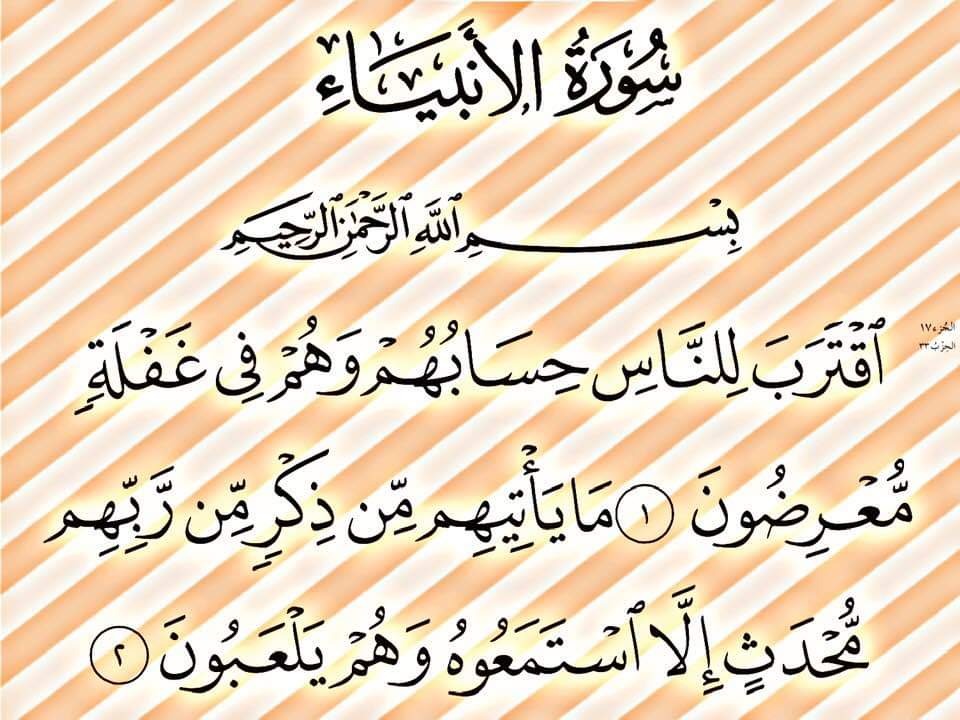 سُورَةُ الأَنبِيَاءِ
بِسْمِ ٱللَّهِ ٱلرَّحْمَٰنِ ٱلرَّحِيمِ
ٱقْتَرَبَ لِلنَّاسِ حِسَابُهُمْ وَهُمْ فِى غَفْلَةٍ
الجُزء ١٧
الحِزْبُ ٣٣
مُّعْرِضُونَ ١ مَا يَأْتِيهِم مِّن ذِكْرٍ مِّن رَّبِّهِم
مُّحْدَثٍ إِلَّا ٱسْتَمَعُوهُ وَهُمْ يَلْعَبُونَ ٢